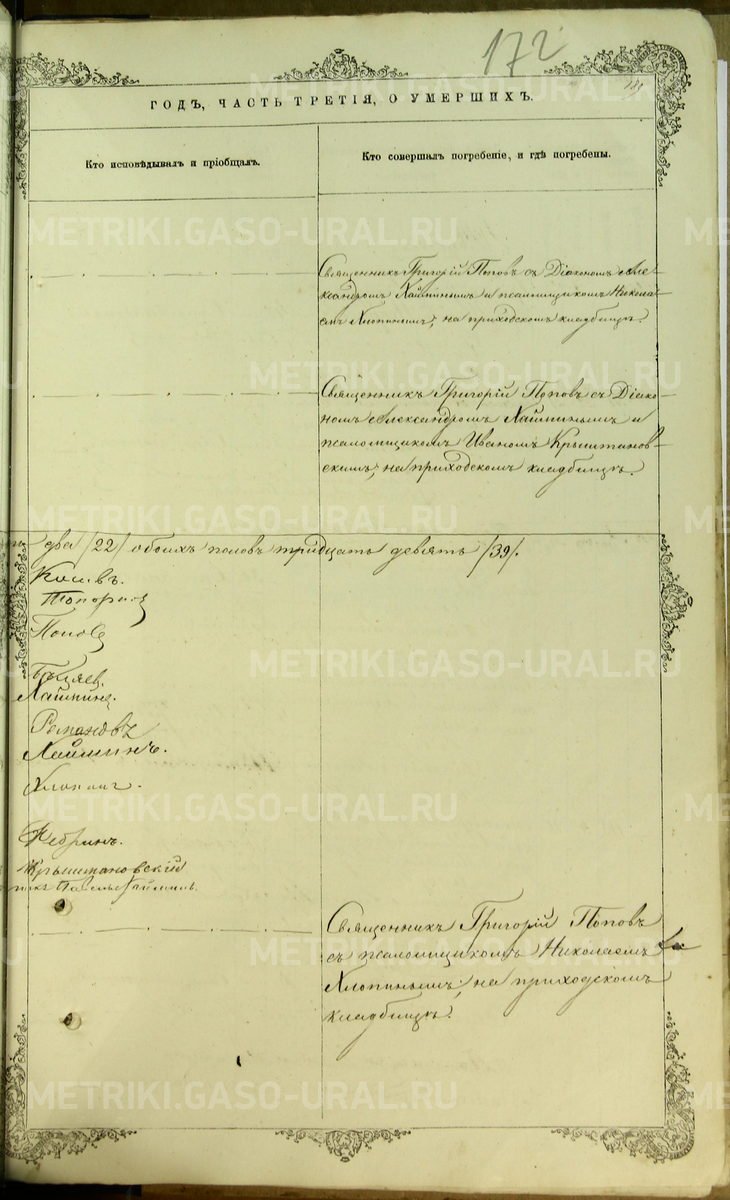 172
ГОДЪ, ЧАСТЬ ТРЕТІЯ, О УМЕРШИХЪ.
Кто исповѣдывалъ и пріобщалъ.
Кто совершалъ погребеніе, и гдѣ погребены.
Священникъ Григорій Поповъ съ Діакономъ Але-
ксандромъ Лаймин­ымъ и псаломщикомъ Никола-
емъ Хлопинымъ, на приходскомъ кладбищѣ.
Священникъ Григорій Поповъ съ Діако-
номъ Александромъ Лайминымъ и
псаломщикомъ Иваномъ Крыштанов-
скимъ, на приходскомъ кладбищѣ.
два /22/ обоихъ половъ тридцать девять /39/.
Поповъ
Лайминъ.
Романовъ
Лайминъ.
Хлопинъ.
Крыштановскій
Священникъ Григорій Поповъ
съ псаломщикомъ Николаемъ
Хлопинымъ, на приходскомъ
кладбищѣ.
METRIKI.GASO-URAL.RU